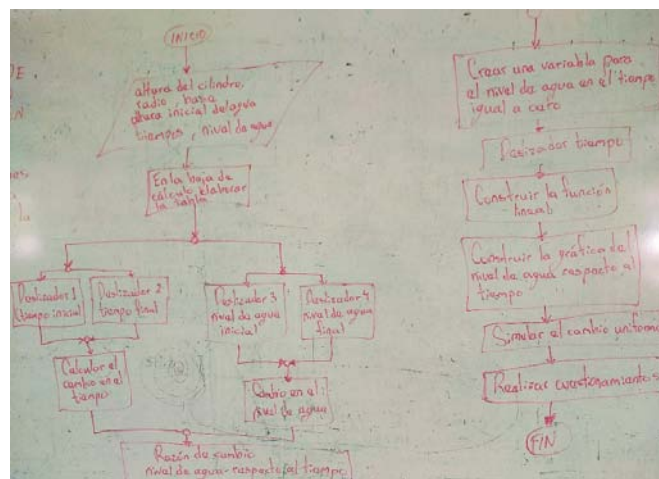 INICIO
altura del cilindro,
radio, base
altura inicial del agua
tiempos, nivel de agua
En la hoja de
cálculo, elaborar
la tabla
Deslizador 1
tiempo inicial
Deslizador 2
tiempo final
Deslizador 3
nivel de agua
inicial
Deslizador 4
nivel de agua
final
Calcular el
cambio en el
tiempo
Cambio en el
nivel de agua
Razón de cambio
nivel de agua-respecto al tiempo
Crear una variable para
el nivel de agua en el tiempo
igual a cero
Deslizador tiempo
Construir la función
lineal
Construir la gráfica del
nivel de agua respecto al
tiempo
Simular el cambio uniforme
Realizar cuestionamientos
FIN